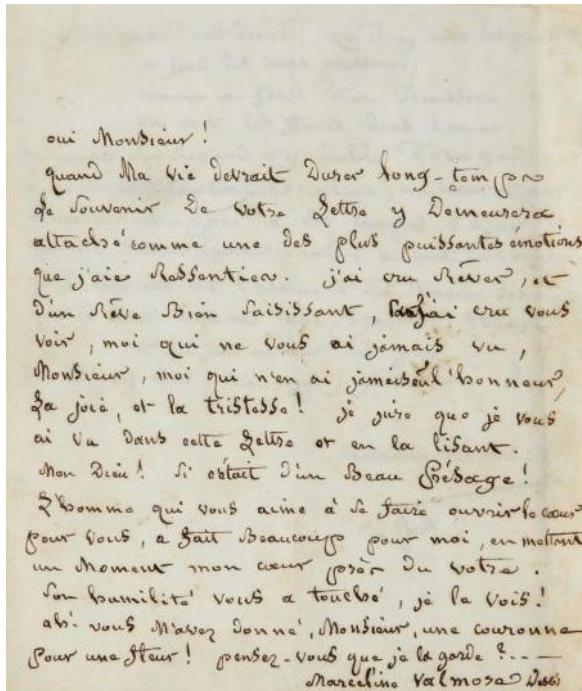 oui Monsieur !
quand Ma vie devrait Durer long-temps
Le Souvenir De votre Lettre y Demeurera
attaché comme une des plus puissantes émotions
que j'aie Ressenties. j'ai cru Rêver, et
d'un Rêve Bien Saisissant, j'ai cru vous
voir, moi qui ne vous ai jamais vu,
Monsieur, moi qui n'en ai jamais eu l'honneur,
La joie, et la tristesse ! je jure que je vous
ai vu dans cette Lettre et en la lisant.
Mon Dieu ! Si c'était d'un Beau Présage !
L'homme qui vous aime à se faire ouvrir le cœur
pour vous, a fait Beaucoup pour moi, en mettant
un Moment mon cœur près du votre.
Son humilité vous a touché, je le vois !
ah ! vous M'avez donné, Monsieur, une couronne
pour une fleur ! pensez-vous que je la garde ?...
Marceline Valmore